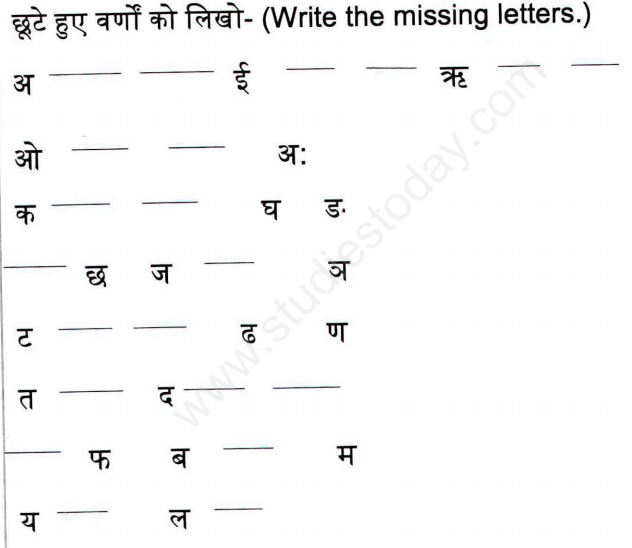 छूटे हुए वर्णों को लिखो- (Write the missing letters.)
अ ___ ___ ई ___ ___ ऋ ___ ___
ओ ___ ___ अ:
क ___ ___ घ ङ
___ छ ज ___ ञ
ट ___ ___ ढ ण
त ___ द ___ ___
___ फ ब ___ म
य ___ ल ___
www.studiestoday.com